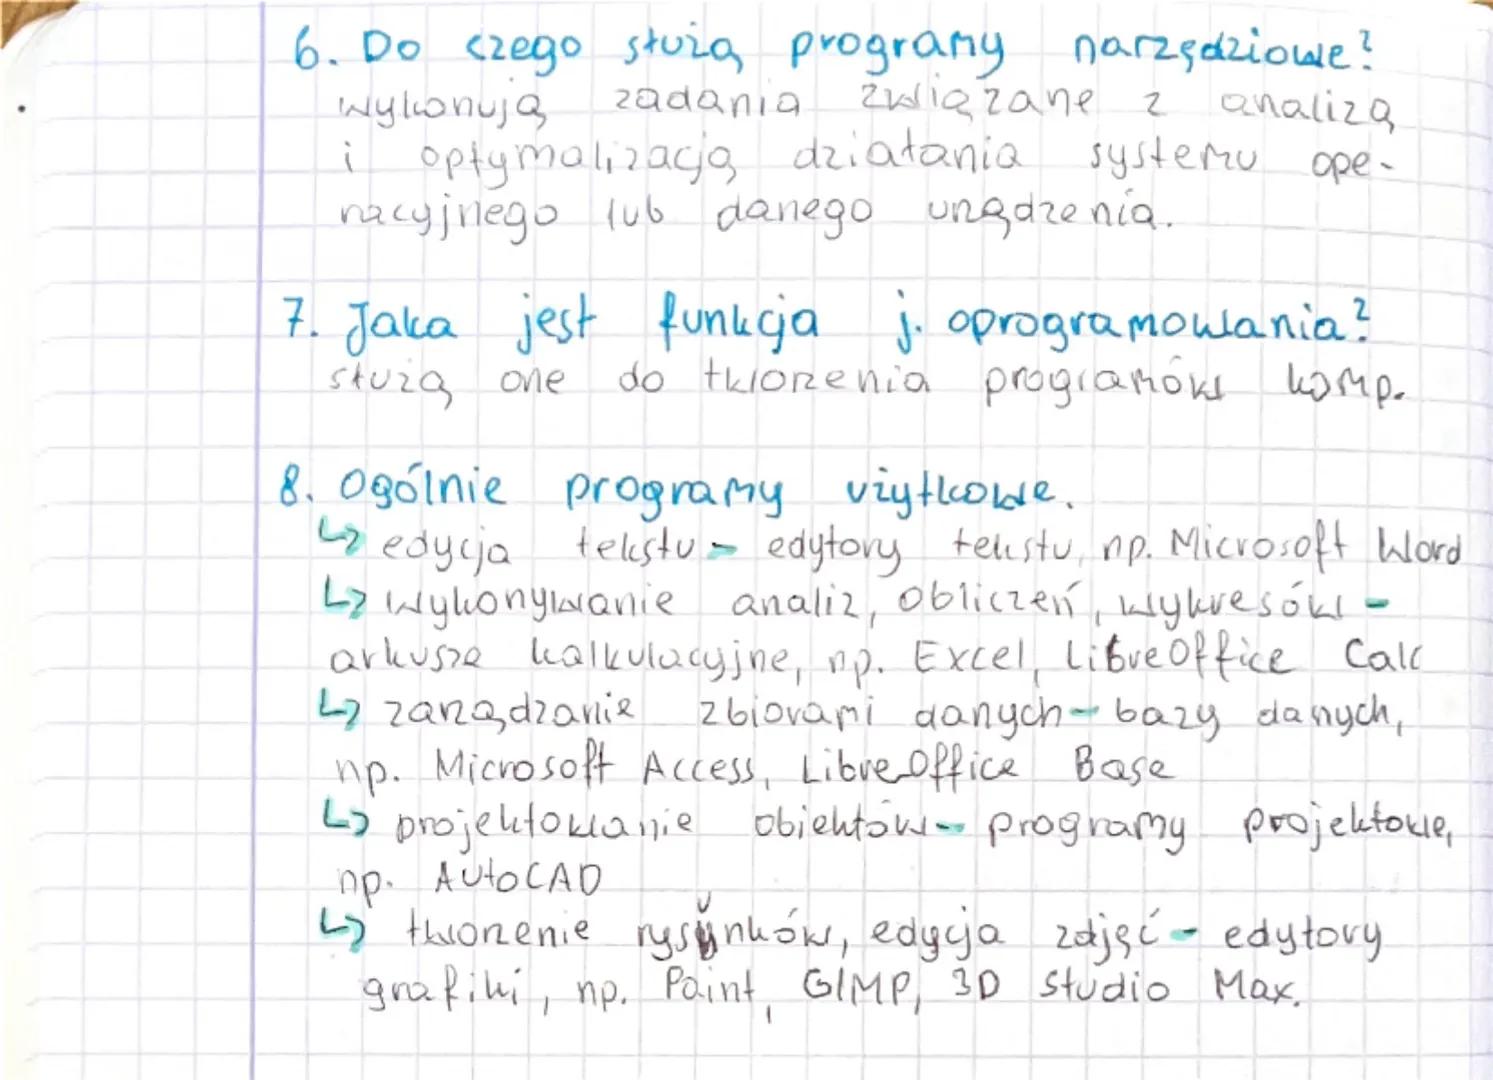 6. Do czego służą programy narzędziowe?
wykonują zadania związane z analizą
i optymalizacją działania systemu ope-
racyjnego lub danego urządzenia.
7. Jaka jest funkcja j. oprogramowania?
służą one do tworzenia programów komp.
8. Ogólnie programy użytkowe.
↳ edycja tekstu - edytory tekstu, np. Microsoft Word
↳ wykonywanie analiz, obliczeń, wykresów -
arkusze kalkulacyjne, np. Excel, LibreOffice Calc
↳ zarządzanie zbiorami danych - bazy danych,
np. Microsoft Access, LibreOffice Base
↳ projektowanie obiektów - programy projektowe,
np. AutoCAD
↳ tworzenie rysunków, edycja zdjęć - edytory
grafiki, np. Paint, GIMP, 3D Studio Max.